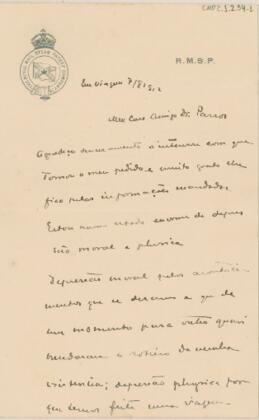 CMOZ.1.2.94-1
R.M.S.P.
Em Viagem 7/8/912
Meu Caro Amigo Dr. Barros
Agradeço summamente o interesse com que
tomou o meu pedido e muito grato lhe
fico pelas informações mandadas.
Estou num estado enorme de depres
são moral e physica
Depressão moral pelos aconteci
mentos que se deram e que de
um momento para outro quasi
mudaram o roteiro da minha
existencia; depressão physica por
que temos feito uma viagem